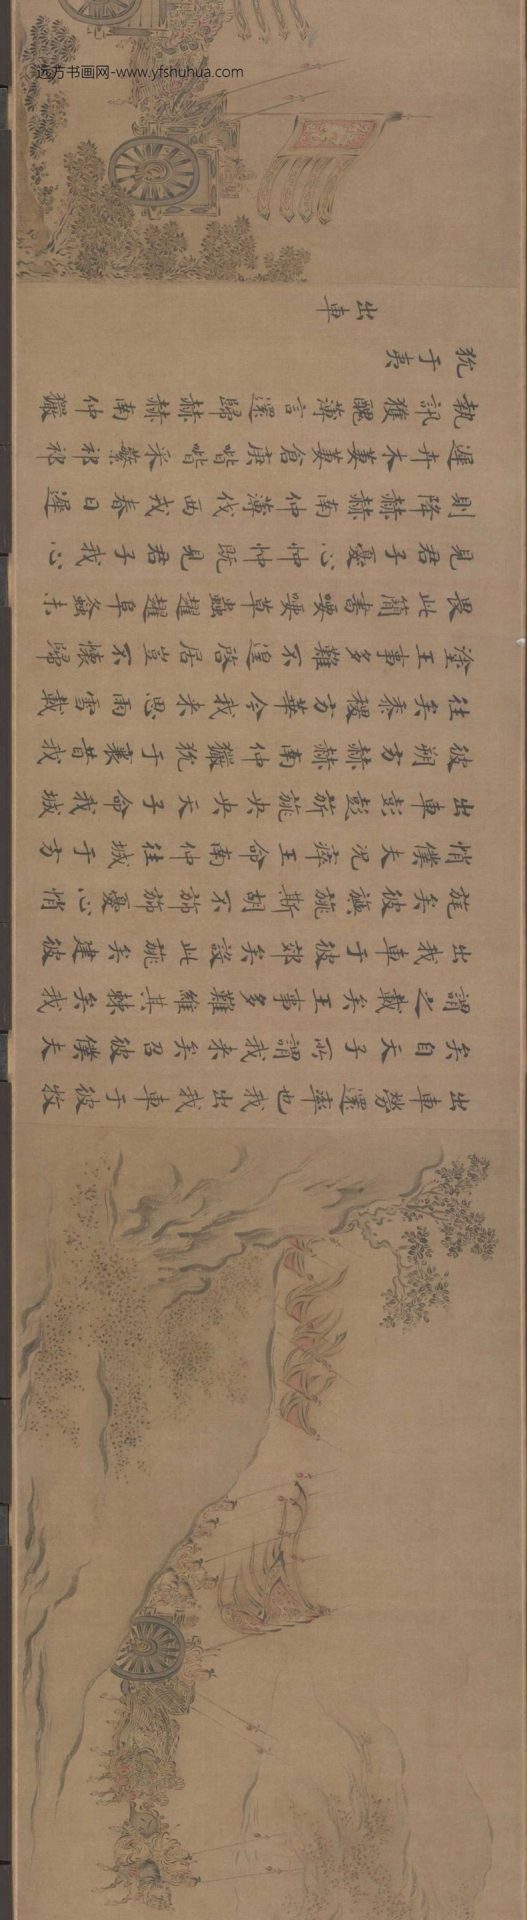 远方书画网-www.yfshuhua.com
出車勞還率也我出我車于彼牧
矣自天子所謂我来矣召彼僕夫
謂之載矣王事多難維其棘矣我
出我車于彼郊矣設此旐矣建彼
旄矣彼旟旐斯胡不斾斾憂心悄
悄僕夫況瘁王命南仲往城于方
出車彭彭旂旐央央天子命我城
彼朔方赫赫南仲玁狁于襄昔我
往矣黍稷方華今我来思雨雪載
塗王事多難不遑啓居豈不懷歸
畏此簡書喓喓草蟲趯趯阜螽未
見君子憂心忡忡既見君子我心
則降赫赫南仲薄伐西戎春日遲
遲卉木萋萋倉庚喈喈采蘩祁祁
執訊獲醜薄言還歸赫赫南仲玁
狁于夷
出車